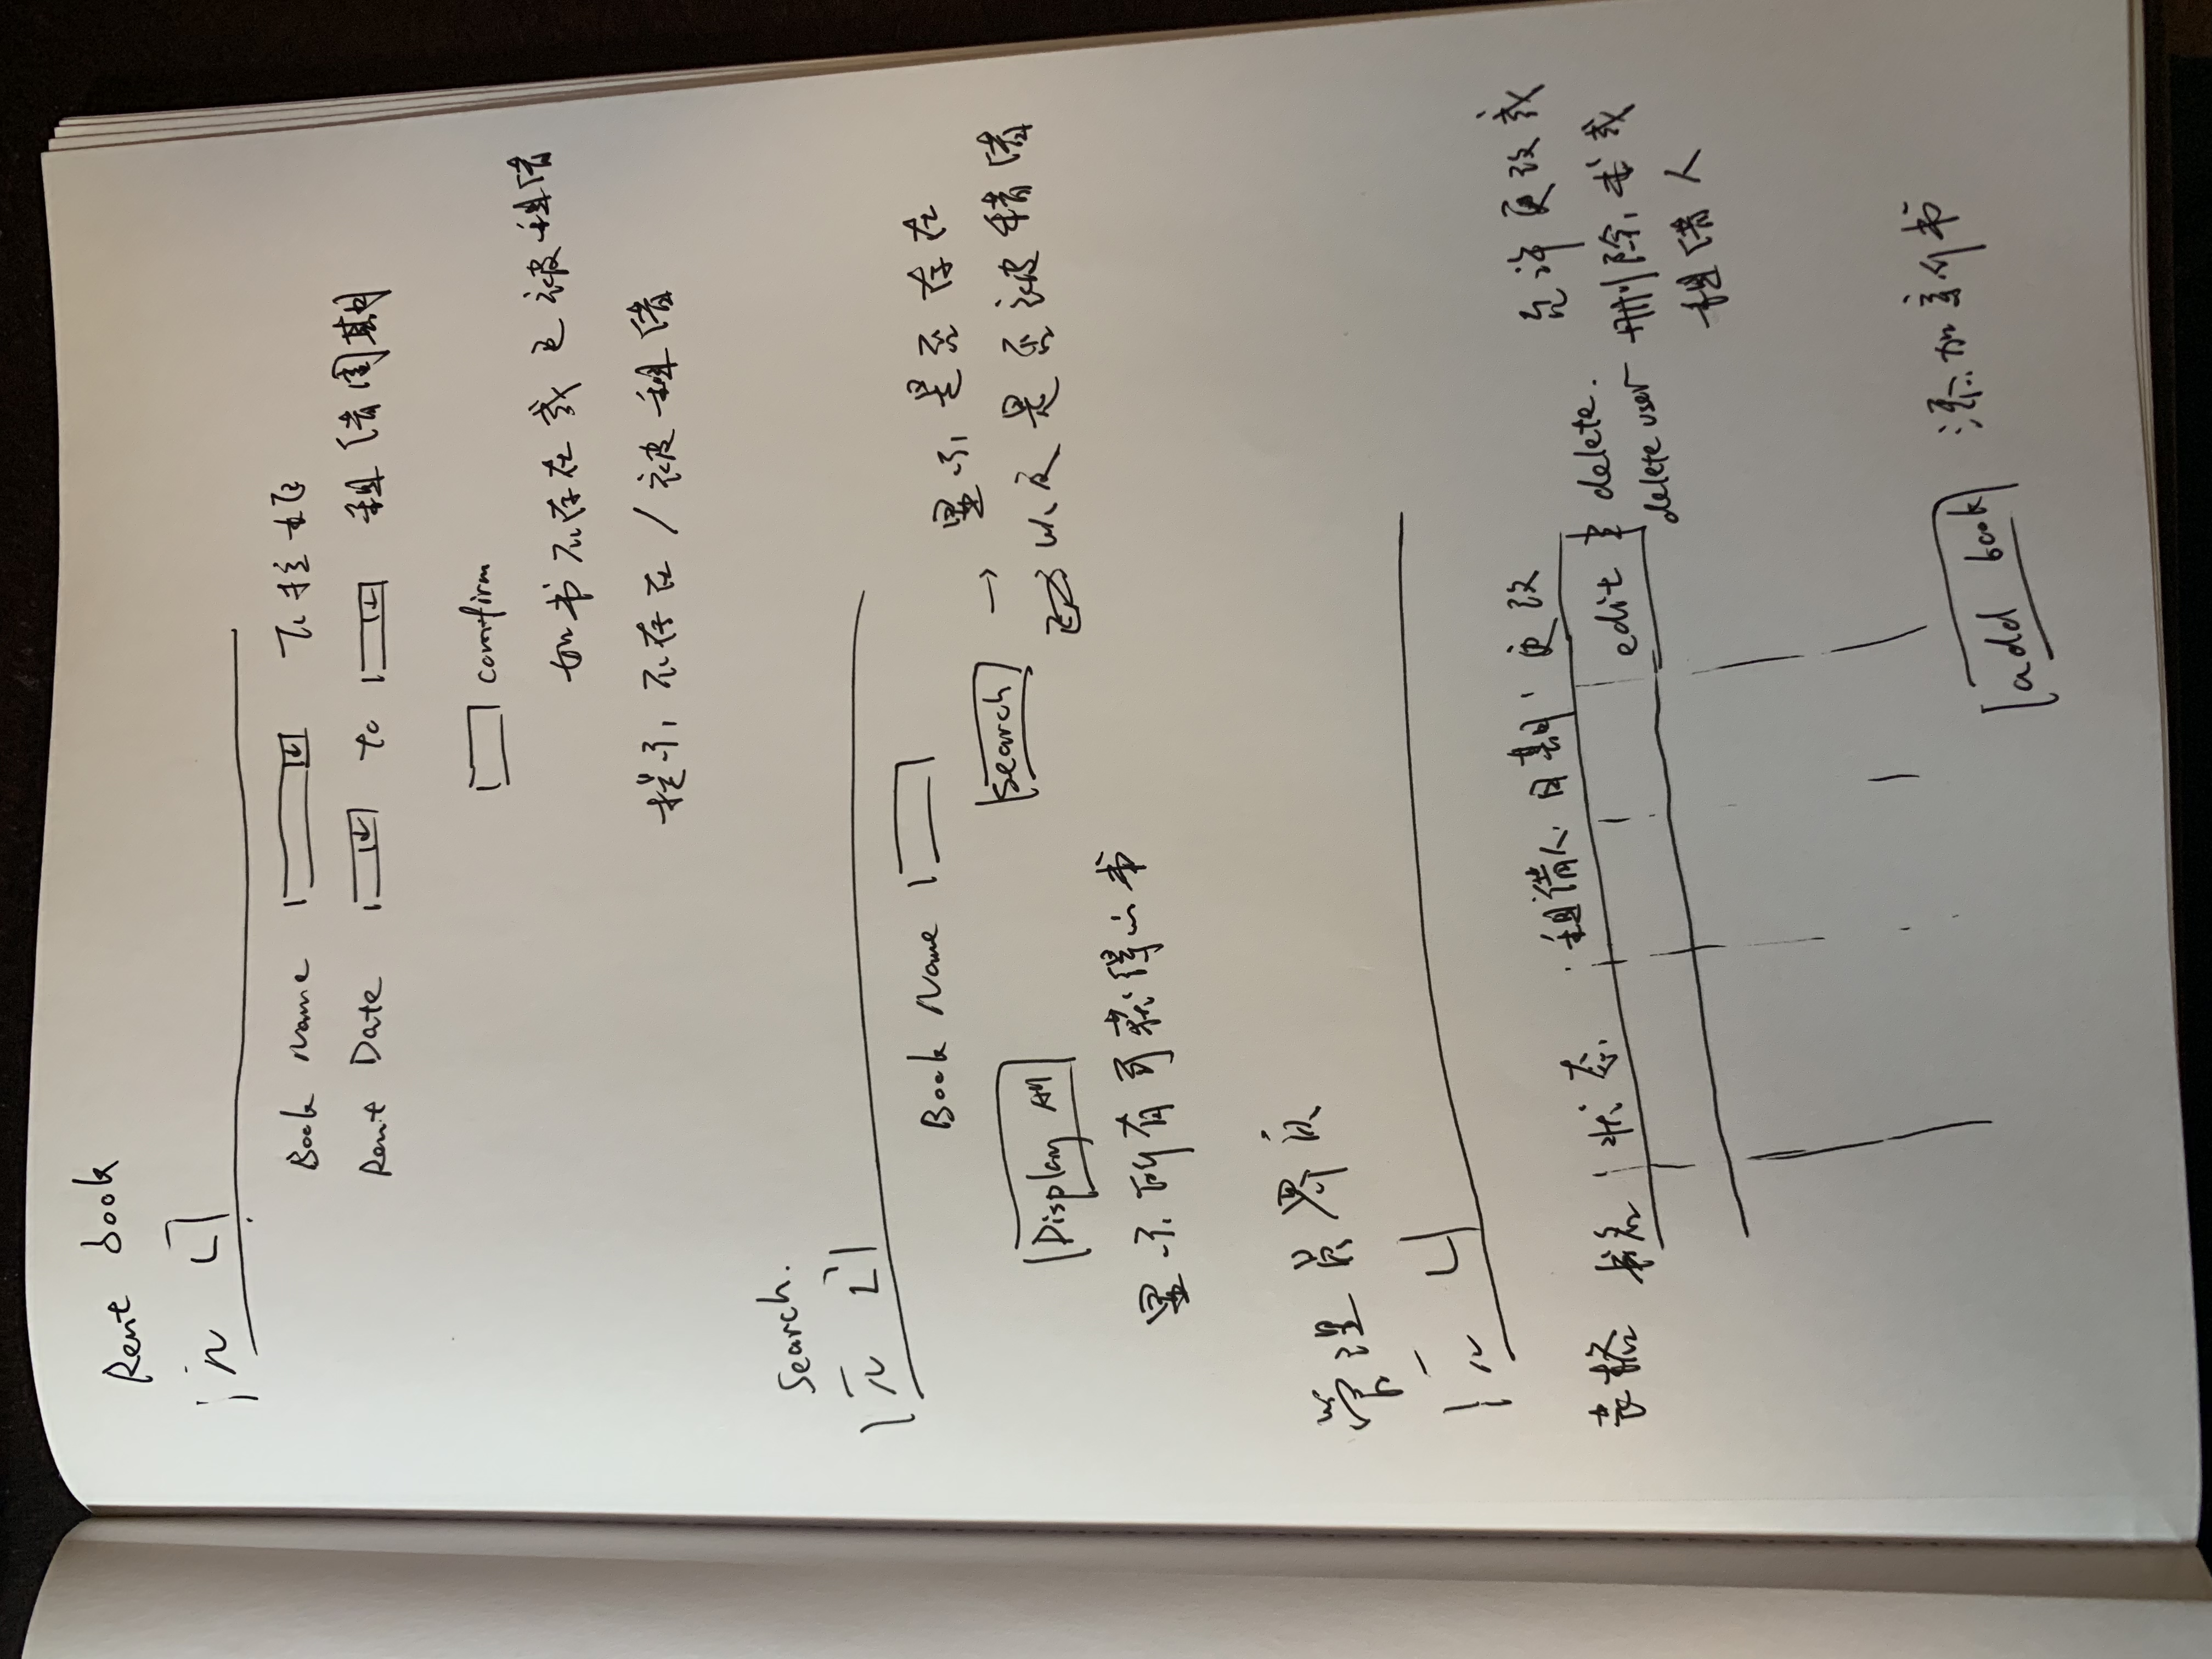 Rent book
Book Name 下拉框
Rent Date to 租借周期
comfirm
如书不存在或已被租借
提示不存在/被租借
Search.
Book Name
Search → 显示是否存在
以及是否被租借
Display All
显示所有可获得的书
管理员界页
表格 书名 状态 租借人 日期 更改
edit delete. 允许更改或
delete user 删除书或
租借人
add book 添加新书